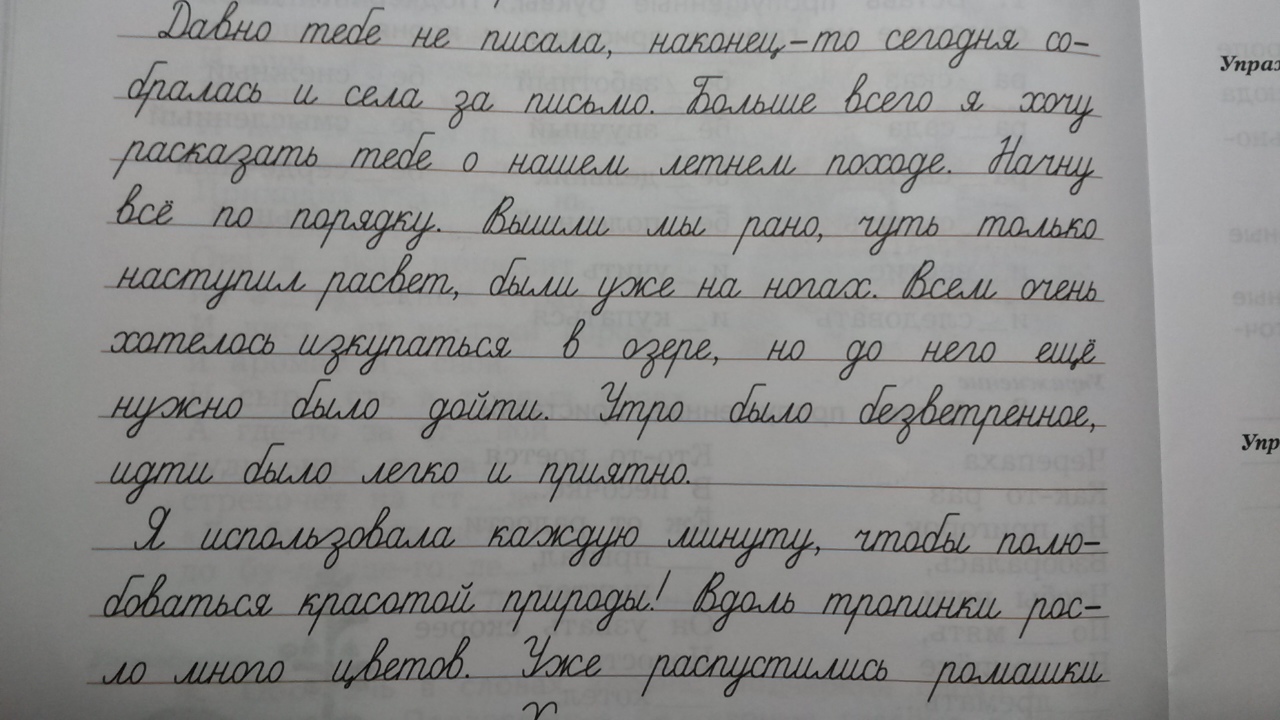 Давно тебе не писала, наконец-то сегодня со-
бралась и села за письмо. Больше всего я хочу
расказать тебе о нашем летнем походе. Начну
всё по порядку. Вышли мы рано, чуть только
наступил расвет, были уже на ногах. Всем очень
хотелось изкупаться в озере, но до него ещё
нужно было дойти. Утро было безветренное,
идти было легко и приятно.
Я использовала каждую минуту, чтобы полю-
боваться красотой природы! Вдоль тропинки рос-
ло много цветов. Уже распустились ромашки
Упраж
Упр